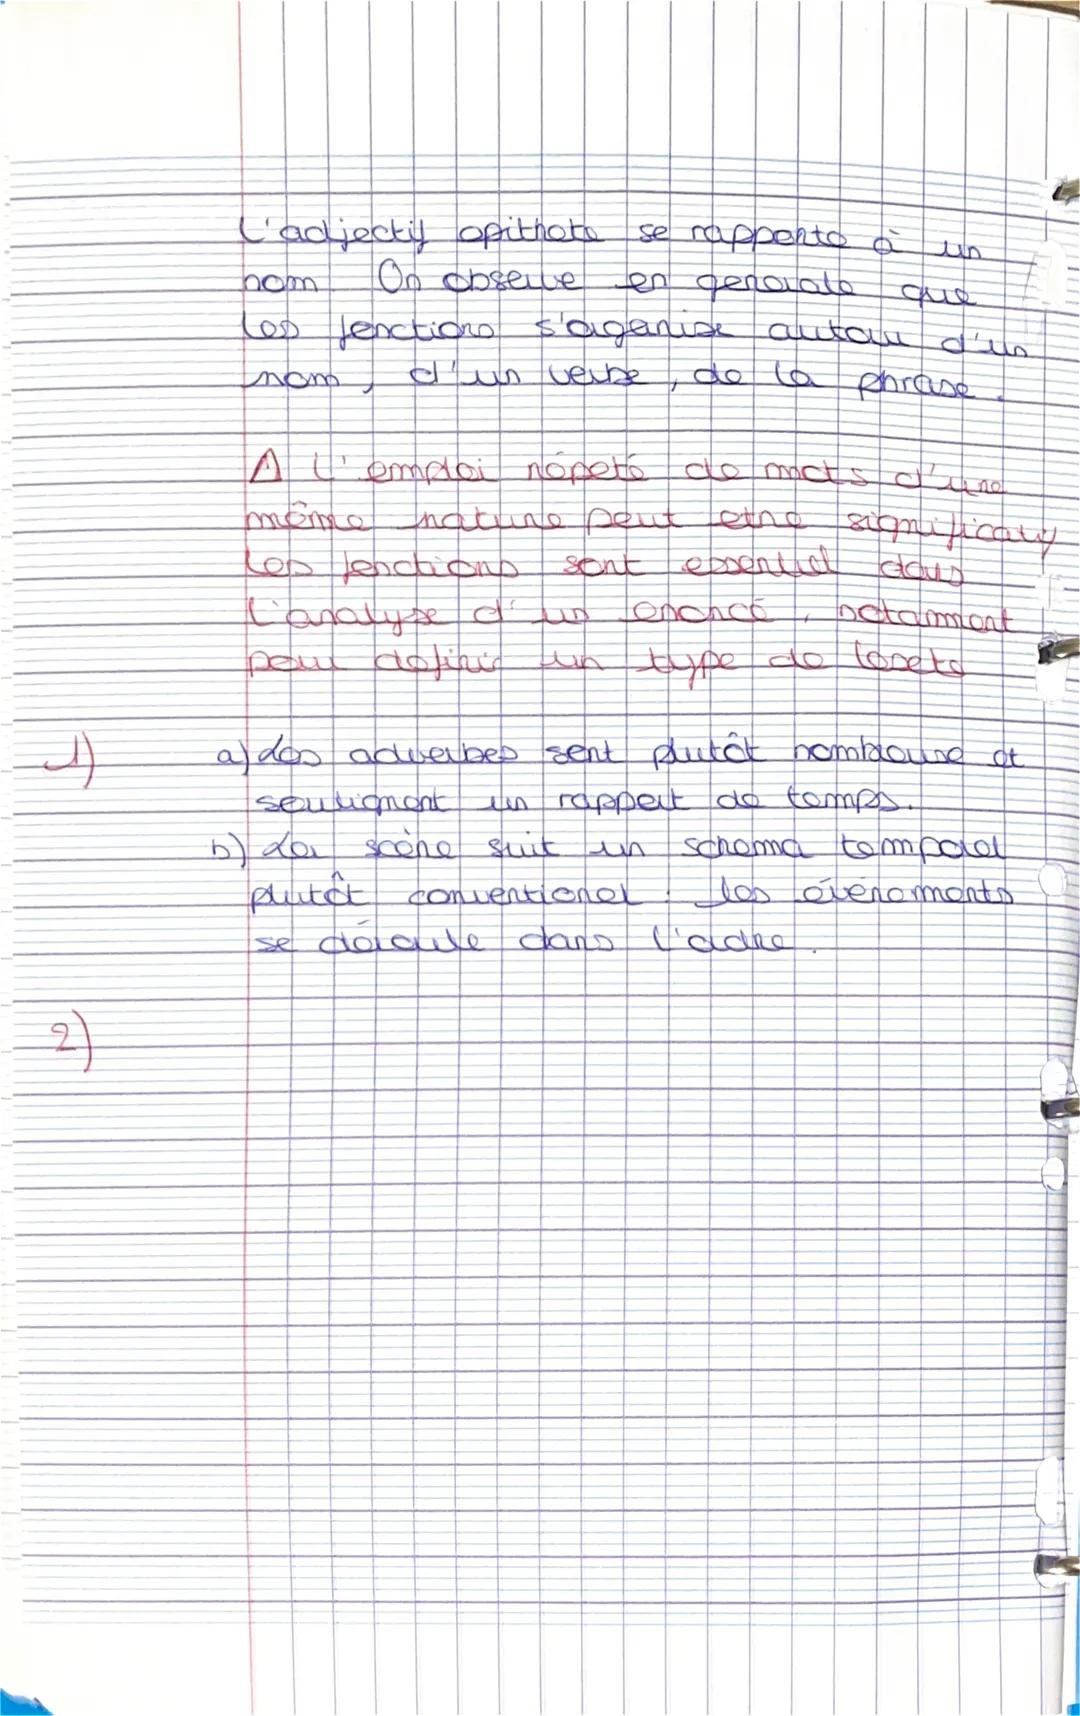 L'adjectif épithète se rapporte à un
nom. On observe en générale que
les fonctions s'organise autour d'un
nom, d'un verbe, de la phrase.
⚠ L'emploi répété de mots d'une
même nature peut etre significatif
Les fonctions sont essentiel dans
l'analyse d'un énoncé, notamment
pour définir un type de texte
1) a) des adverbes sont plutôt nombreuse et
soulignent un rapport de temps.
b) La scène suit un schéma temporel
plutôt conventionel : les événements
se déroule dans l'odre.
2)